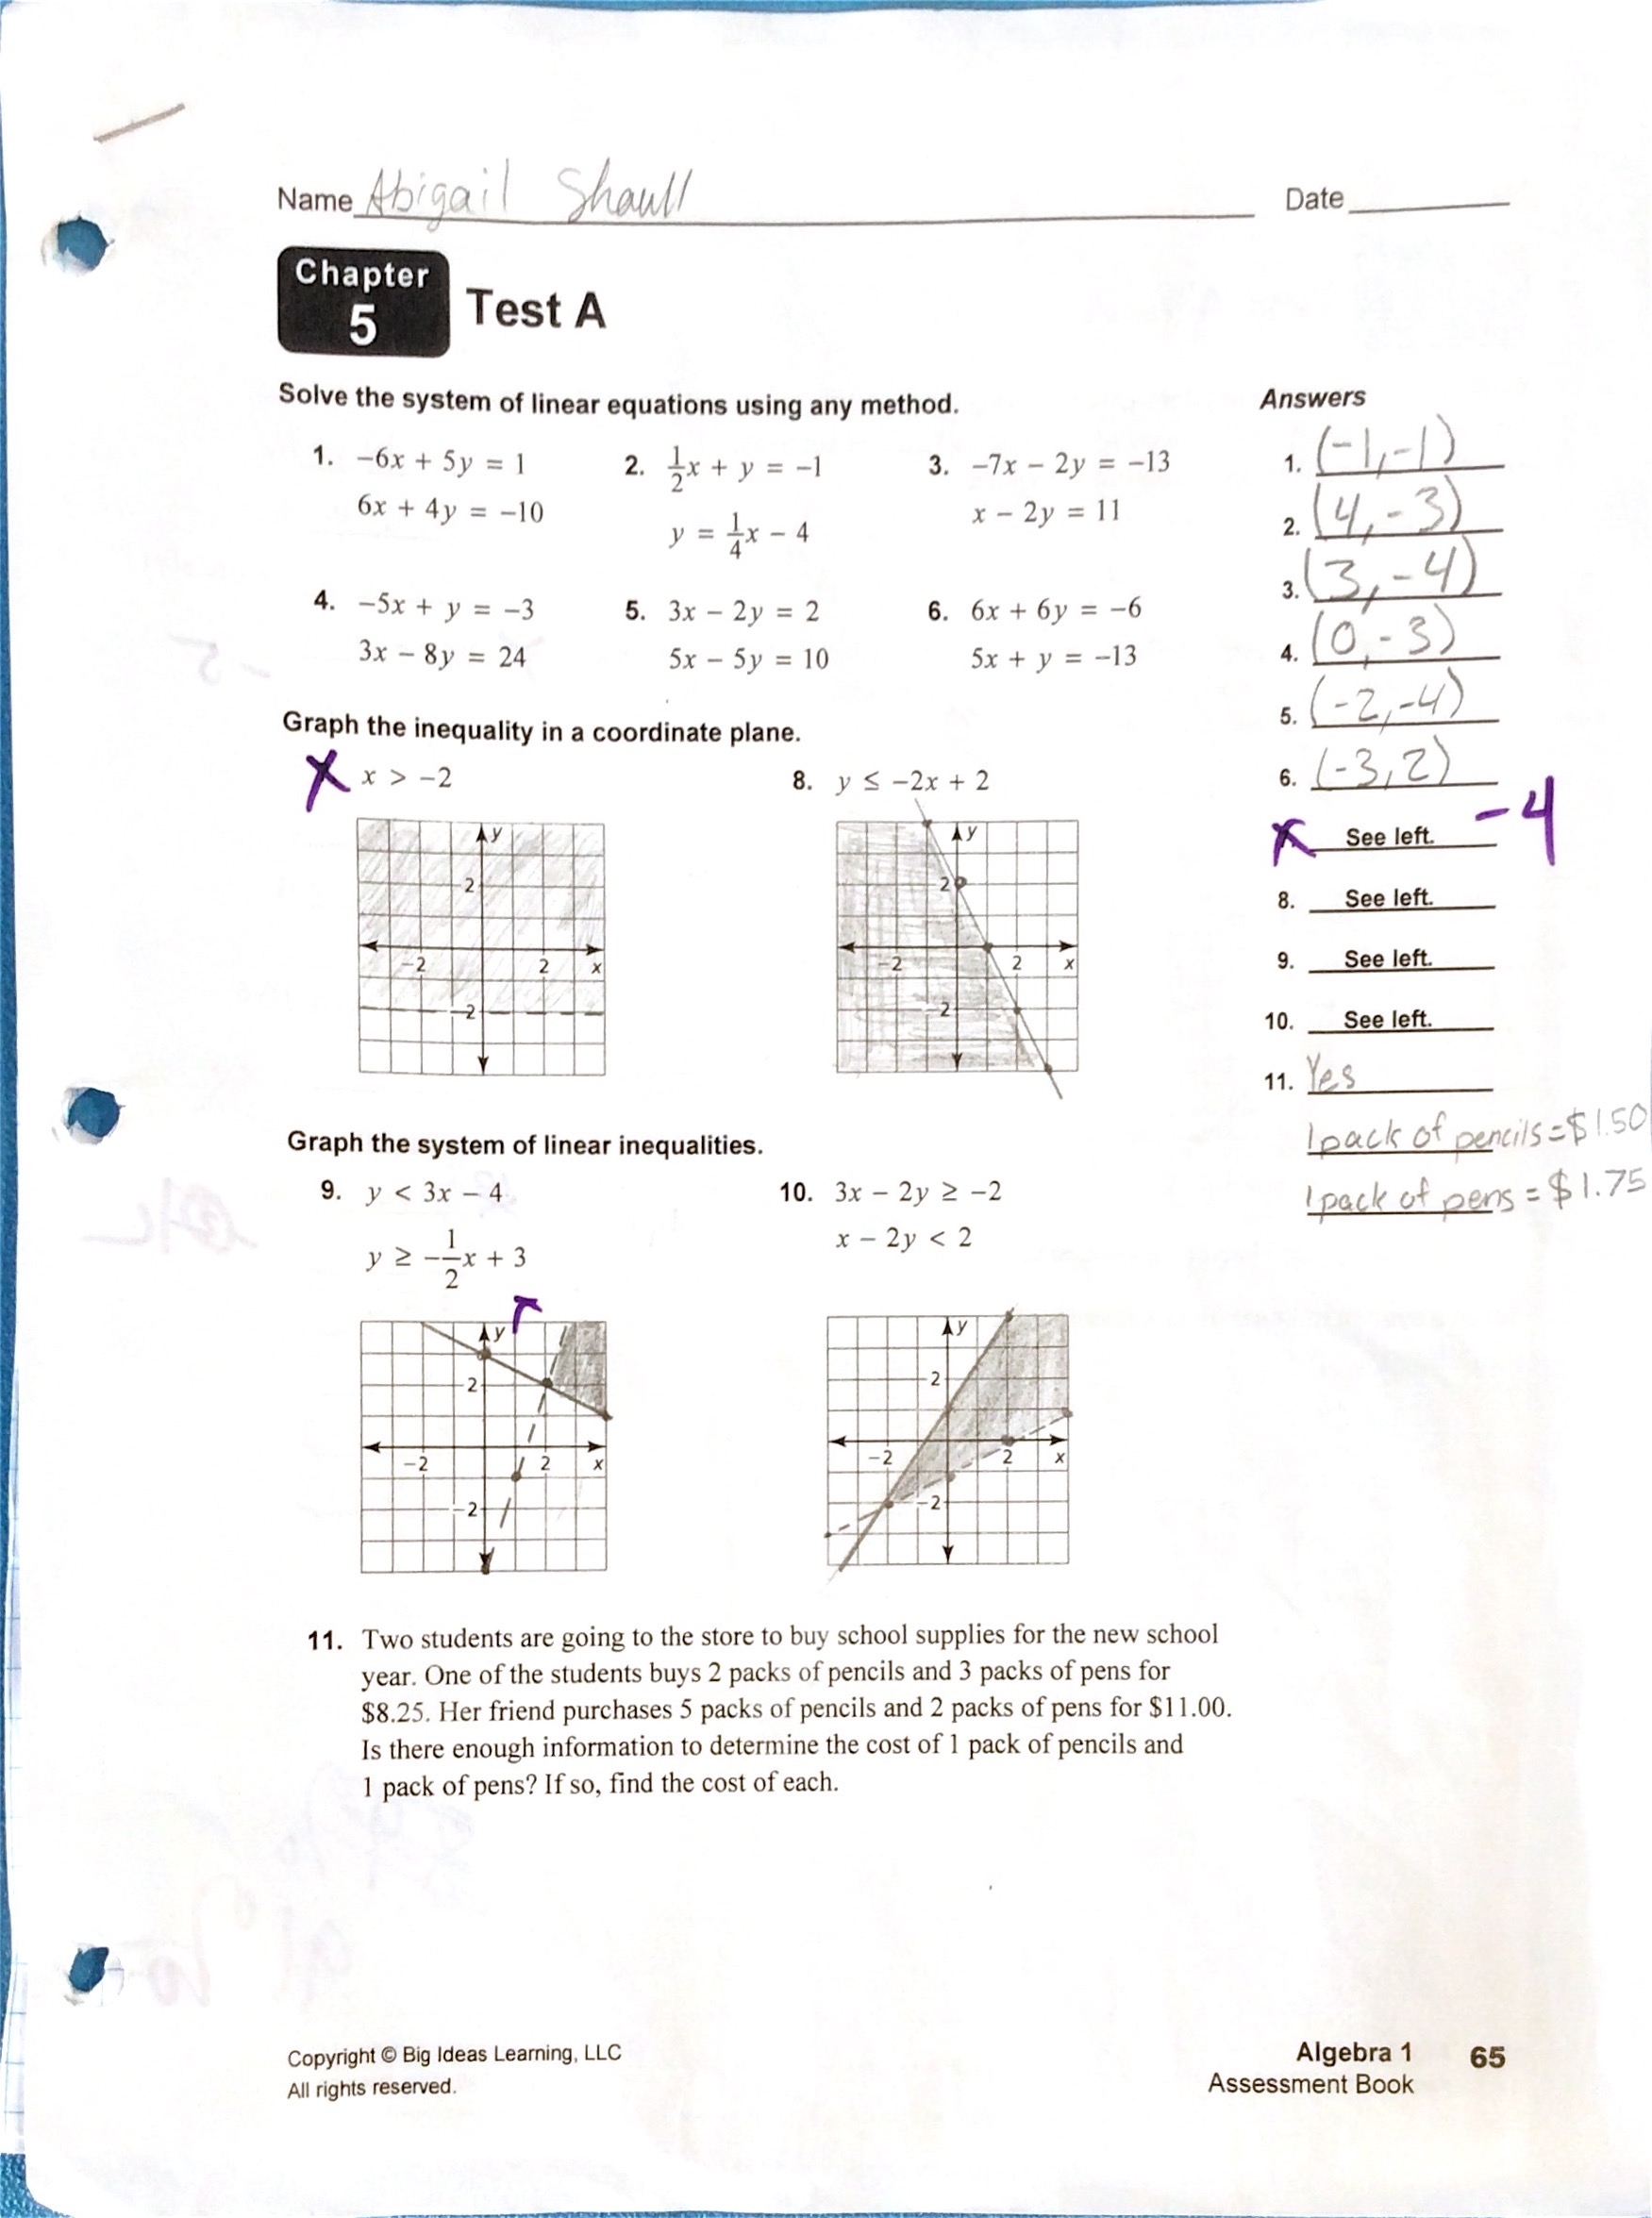 Name Abigail Shaull Date
Chapter 5 Test A
Solve the system of linear equations using any method.
1. −6x + 5y = 1
6x + 4y = −10
2. 1/2x + y = −1
y = 1/4x − 4
3. −7x − 2y = −13
x − 2y = 11
4. −5x + y = −3
3x − 8y = 24
5. 3x − 2y = 2
5x − 5y = 10
6. 6x + 6y = −6
5x + y = −13
Graph the inequality in a coordinate plane.
x x > −2
8. y ≤ −2x + 2
y
2
−2 2 x
−2
y
2
−2 2 x
−2
Graph the system of linear inequalities.
9. y < 3x − 4
y ≥ −1/2x + 3
10. 3x − 2y ≥ −2
x − 2y < 2
y
2
−2 2 x
−2
y
2
−2 2 x
−2
11. Two students are going to the store to buy school supplies for the new school
year. One of the students buys 2 packs of pencils and 3 packs of pens for
$8.25. Her friend purchases 5 packs of pencils and 2 packs of pens for $11.00.
Is there enough information to determine the cost of 1 pack of pencils and
1 pack of pens? If so, find the cost of each.
Answers
1. (-1,-1)
2. (4,-3)
3. (3,-4)
4. (0,-3)
5. (-2,-4)
6. (-3,2)
x See left. -4
8. See left.
9. See left.
10. See left.
11. Yes
1 pack of pencils = $1.50
1 pack of pens = $1.75
Copyright © Big Ideas Learning, LLC
All rights reserved.
Algebra 1 65
Assessment Book